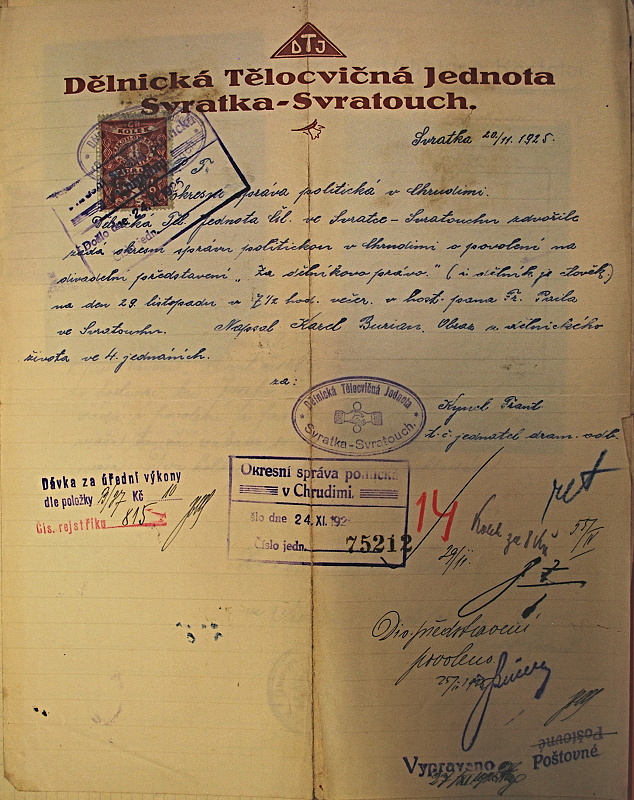 DTJ
Dělnická Tělocvičná Jednota
Svratka-Svratouch.
Svratka 20/11. 1925.
Okresní správa politická v Chrudimi.
Dělnická Těl. Jednota čsl. ve Svratce-Svratouchu zdvořile
žádá okresní správu politickou v Chrudimi o povolení na
divadelní představení „Za dělníkovo právo." (i dělník je člověk)
na den 29. listopadu v 7½ hod. večer. v host. pana Fr.
ve Svratouchu. Napsal Karel Burian, Obraz z dělnického
života ve 4. jednáních.
za:
Dělnická Tělocvičná Jednota
Svratka-Svratouch.
Kyncl Frant
t. č. jednatel dram. odb.
Dávka za úřední výkony
dle položky Kč 10
Čís. rejstříku 815
Okresní správa politická
v Chrudimi.
šlo dne 24. XI. 192
Číslo jedn. 75212
14
Kolek za 8 Kč
Div. představení
povoleno
Vypraveno
Poštovné
Poštovné